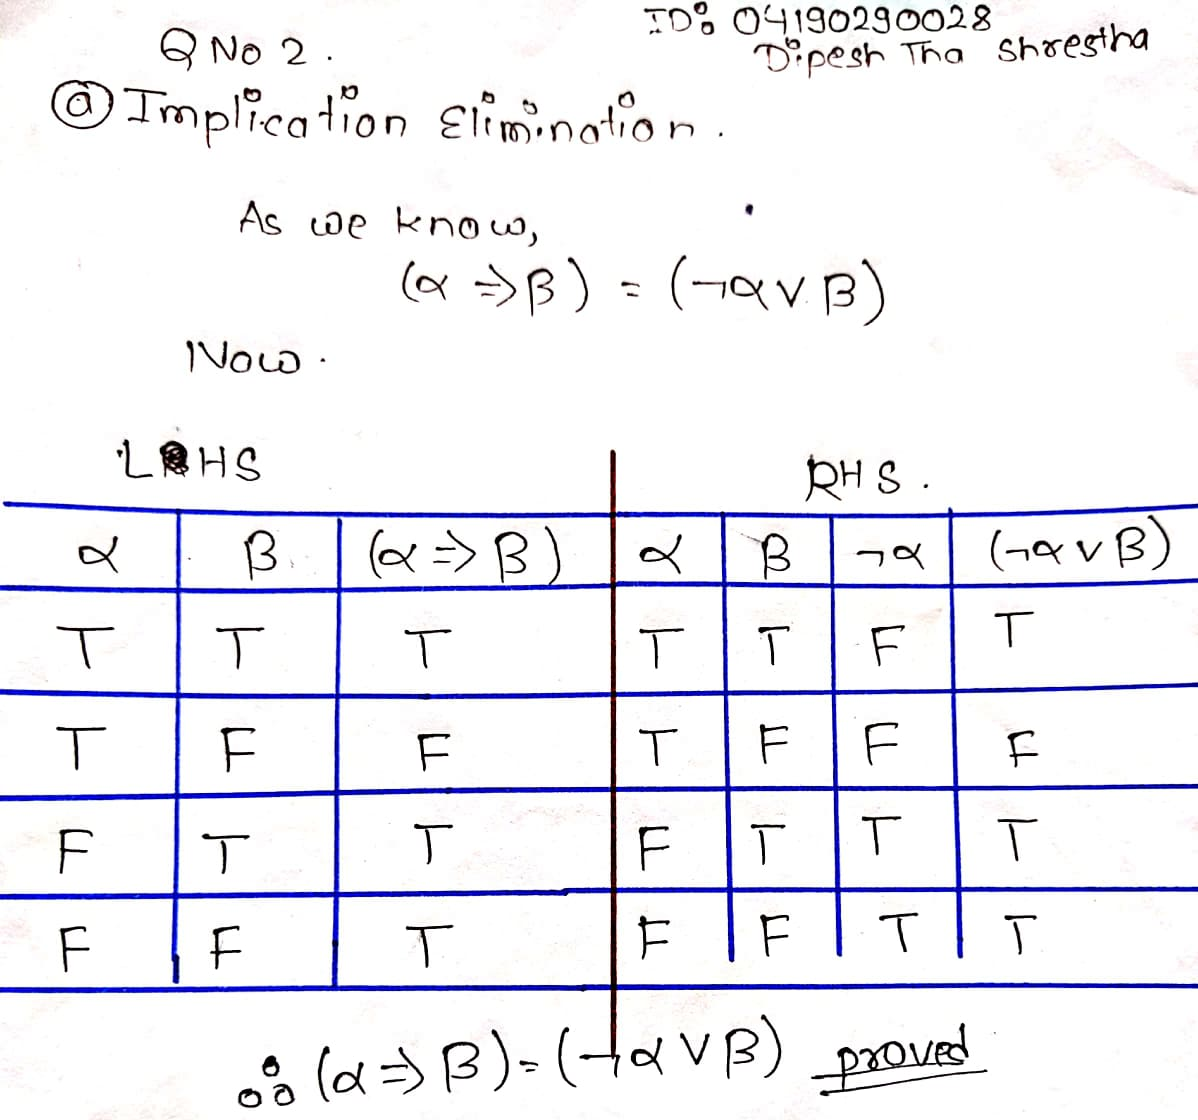 ID: 04190290028
Dipesh Tha Shrestha
Q No 2.
ⓐ Implication Elimination.
As we know,
(α ⇒ β) = (¬α ∨ β)
Now.
LHS
RHS.
α β (α ⇒ β) α β ¬α (¬α ∨ β)
T T T T T F T
T F F T F F F
F T T F T T T
F F T F F T T
∴ (α ⇒ β) = (¬α ∨ β) proved